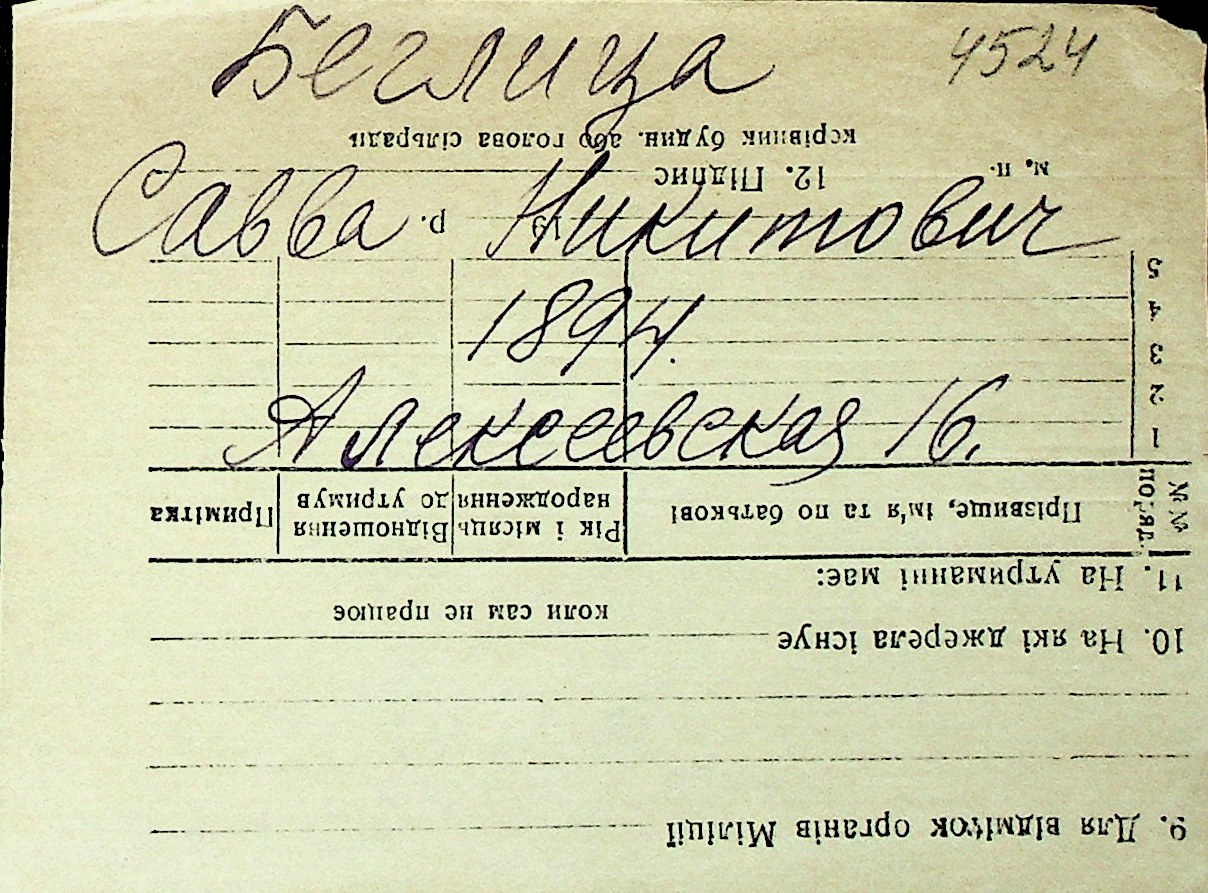 4524
Беглица
Савва Никитович
1894.
Алексеевская 16.
9. Для відміток органів Міліції
10. На які джерела існує
коли сам не працює
11. На утриманні має:
№№ по ряд. Прізвище, ім'я та по батькові Рік і місяць народження Відношення до утримув Примітка
1
2
3
4
5
р.
м. п. 12. Підпис
керівник будин. або голова сільради